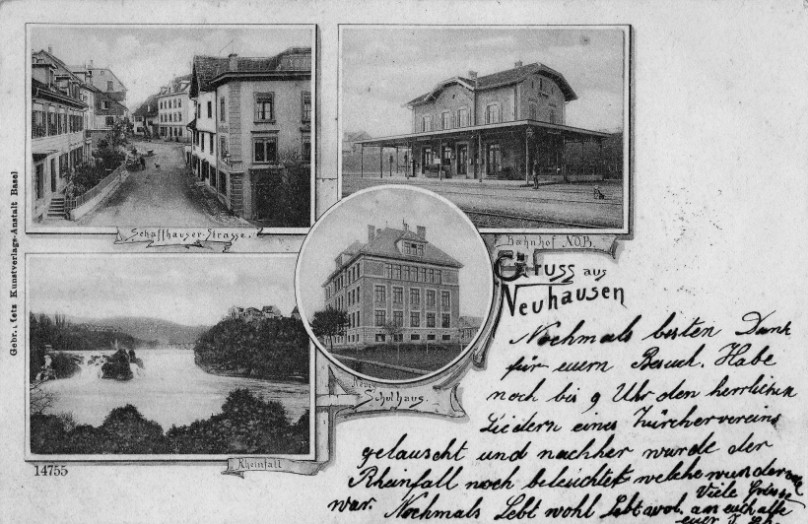 Schaffhauser-Strasse.
Bahnhof N.O.B.
Gruss aus
Neuhausen
Neues
Schulhaus.
Rheinfall
14755
Kunstverlags-Anstalt Basel
Nochmals besten Dank
für euern Besuch. Habe
noch bis 9 Uhr den herrlichen
Liedern eines Zürchervereins
gelauscht und nachher wurde der
Rheinfall noch beleuchtet welches wunder
war. Nochmals Lebt wohl Lebt wol. Viele Grüsse
an euch alle
euer